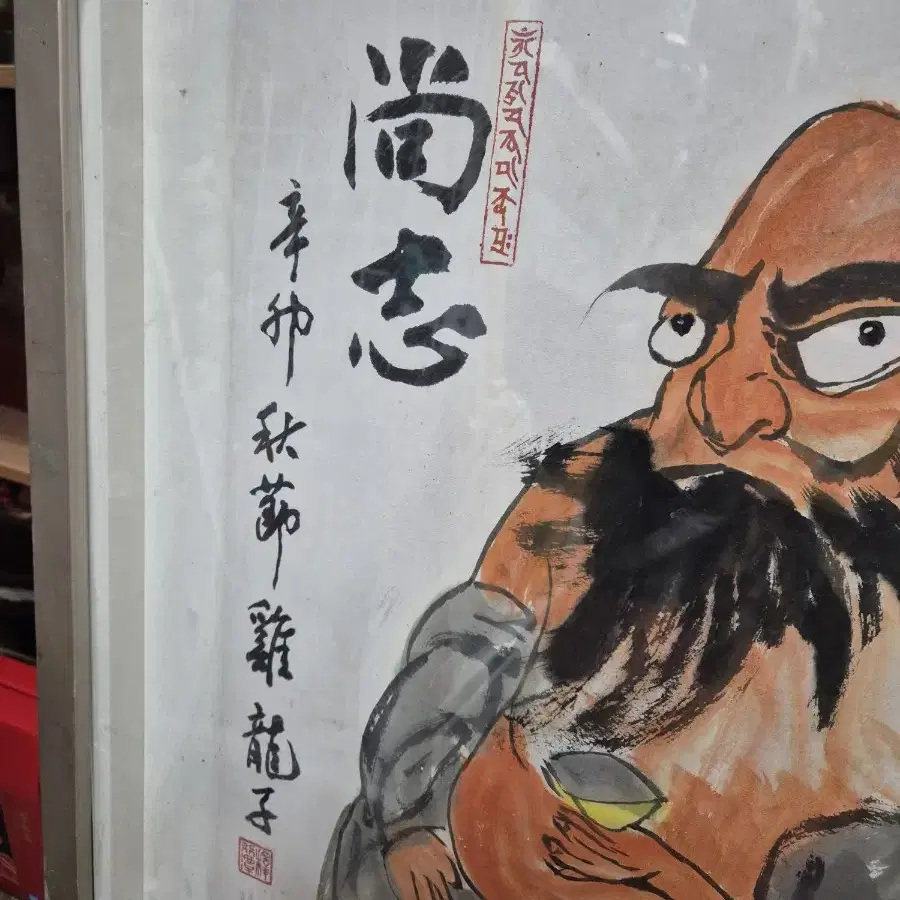 尚志
辛卯秋節雞龍子